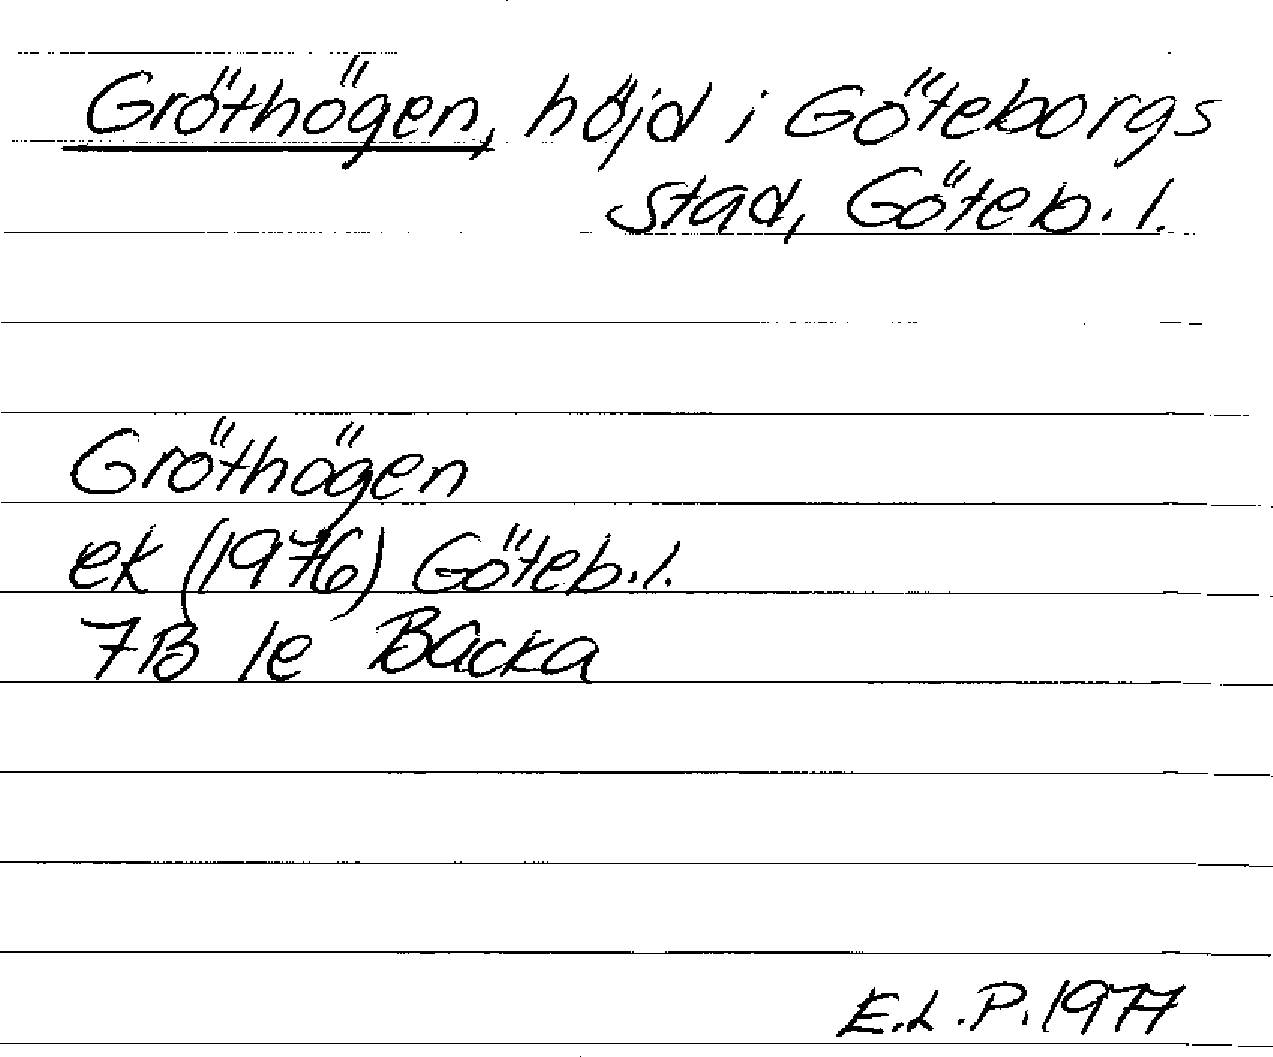 Gröthögen, höjd i Göteborgs
stad, Göteb. l.
Gröthögen
ek (1976) Göteb. l.
7B 1e Backa
E.L.P. 1977